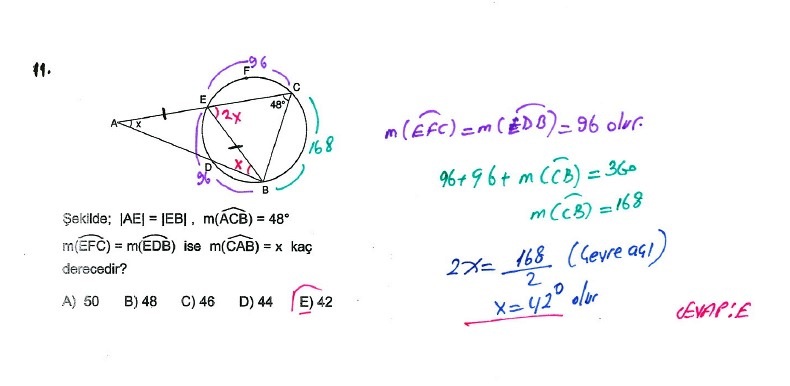 11.
96
F
C
E
2x
48°
A
x
168
D
x
96
B
Şekilde; |AE| = |EB| , m(ACB) = 48°
m(EFC) = m(EDB) ise m(CAB) = x kaç
derecedir?
A) 50 B) 48 C) 46 D) 44 E) 42
m(EFC) = m(EDB) = 96 olur.
96+96+ m(CB) = 360
m(CB) = 168
2x = 168/2 (Çevre açı)
x = 42° olur
CEVAP: E